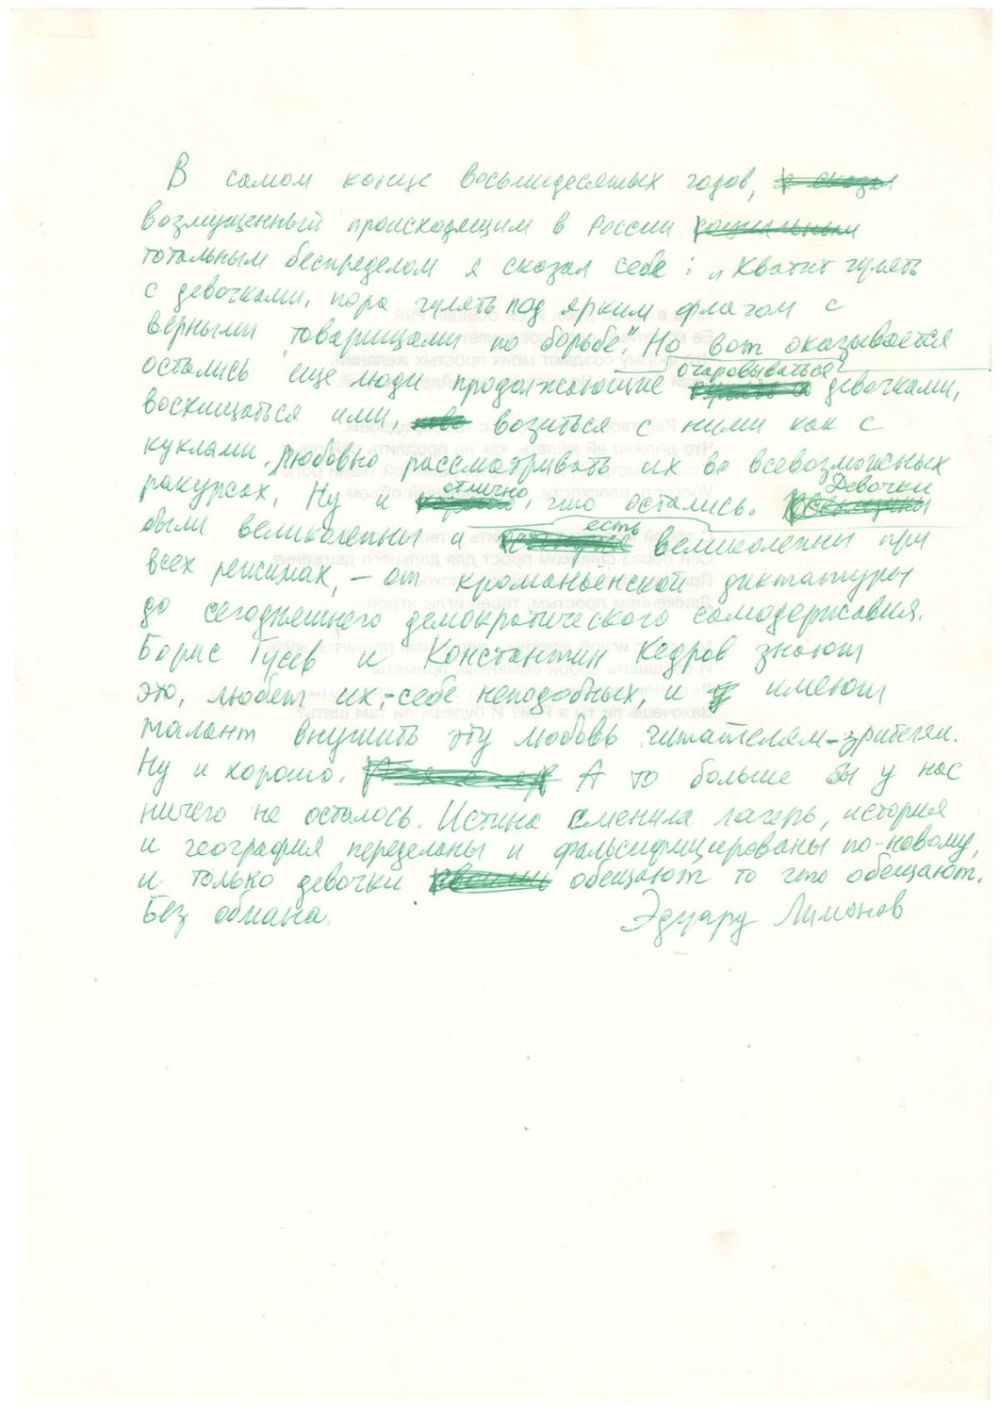 В самом конце восьмидесятых годов,
возмущенный происходящим в России
тотальным беспределом я сказал себе: „Хватит гулять
с девочками, пора гулять под ярким флагом с
верными товарищами по борьбе". Но вот оказывается
остались еще люди продолжающие очаровываться девочками,
восхищаться ими, возиться с ними как с
куклами, любовно рассматривать их во всевозможных
ракурсах, Ну и отлично, что остались. Девочки
были великолепны и есть великолепны при
всех режимах, – от кроманьенской диктатуры
до сегодняшнего демократического самодержавия.
Борис Гусев и Константин Кедров знают
это, любят их,-себе неподобных, и имеют
талант внушить эту любовь читателям-зрителям.
Ну и хорошо. А то больше бы у нас
ничего не осталось. Истина сменила лагерь, история
и география переделаны и фальсифицированы по-новому,
и только девочки обещают то что обещают.
Без обмана. Эдуард Лимонов